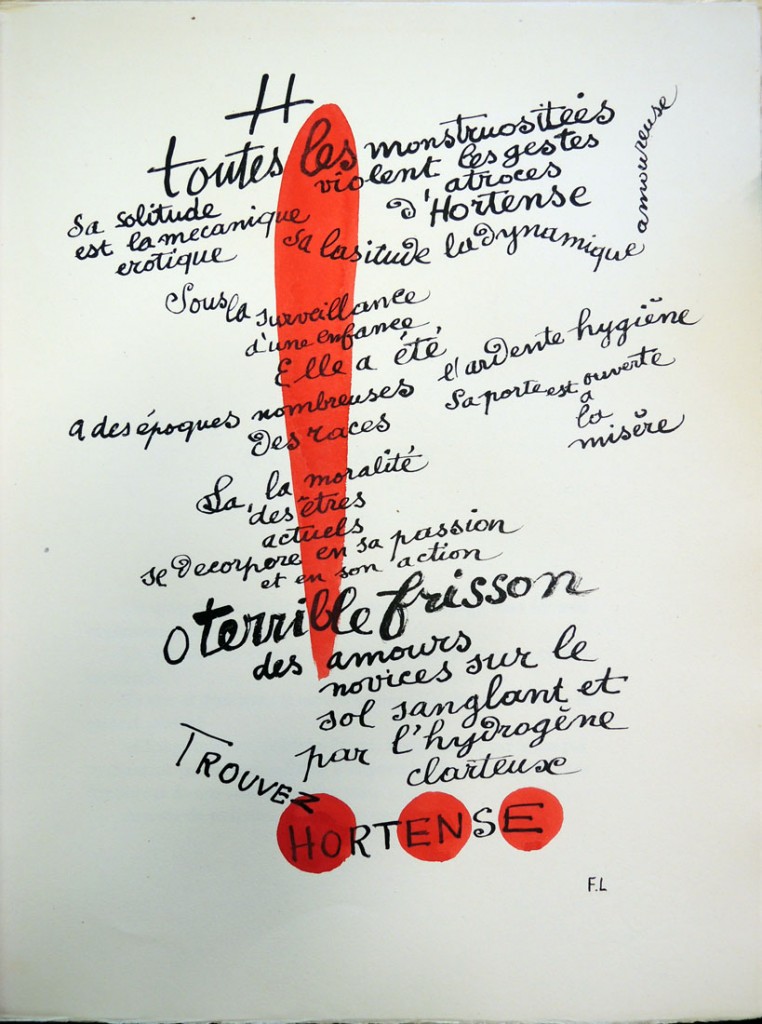 H
toutes les monstruositées
violent les gestes
atroces
d'Hortense
Sa solitude
est la mecanique
erotique
sa lasitude la dynamique
amoureuse
Sous la surveillance
d'une enfance
Elle a été
a des époques nombreuses
l'ardente hygiène
des races
Sa porte est ouverte
a
la
misère
La, la moralité
des êtres
actuels
se decorpore en sa passion
et en son action
O terrible frisson
des amours
novices sur le
sol sanglant et
par l'hydrogène
clarteuxe
TROUVEZ
HORTENSE
F.L